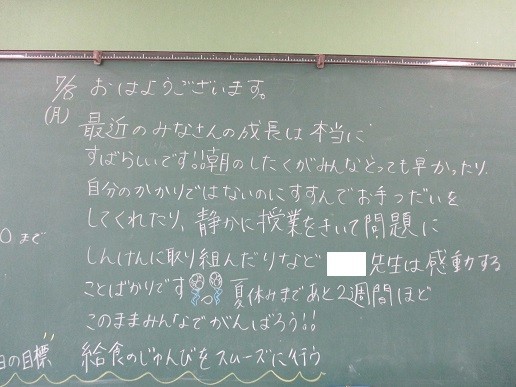 7/8 おはようございます。
(月)
最近のみなさんの成長は本当に
すばらしいです!!朝のしたくがみんなとっても早かったり、
自分のかかりではないのにすすんでお手つだいを
してくれたり、静かに授業をきいて問題に
0まで
しんけんに取り組んだりなど 先生は感動する
ことばかりです 夏休みまであと2週間ほど
このままみんなでがんばろう!!
日の目標 給食のじゅんびをスムーズに行う